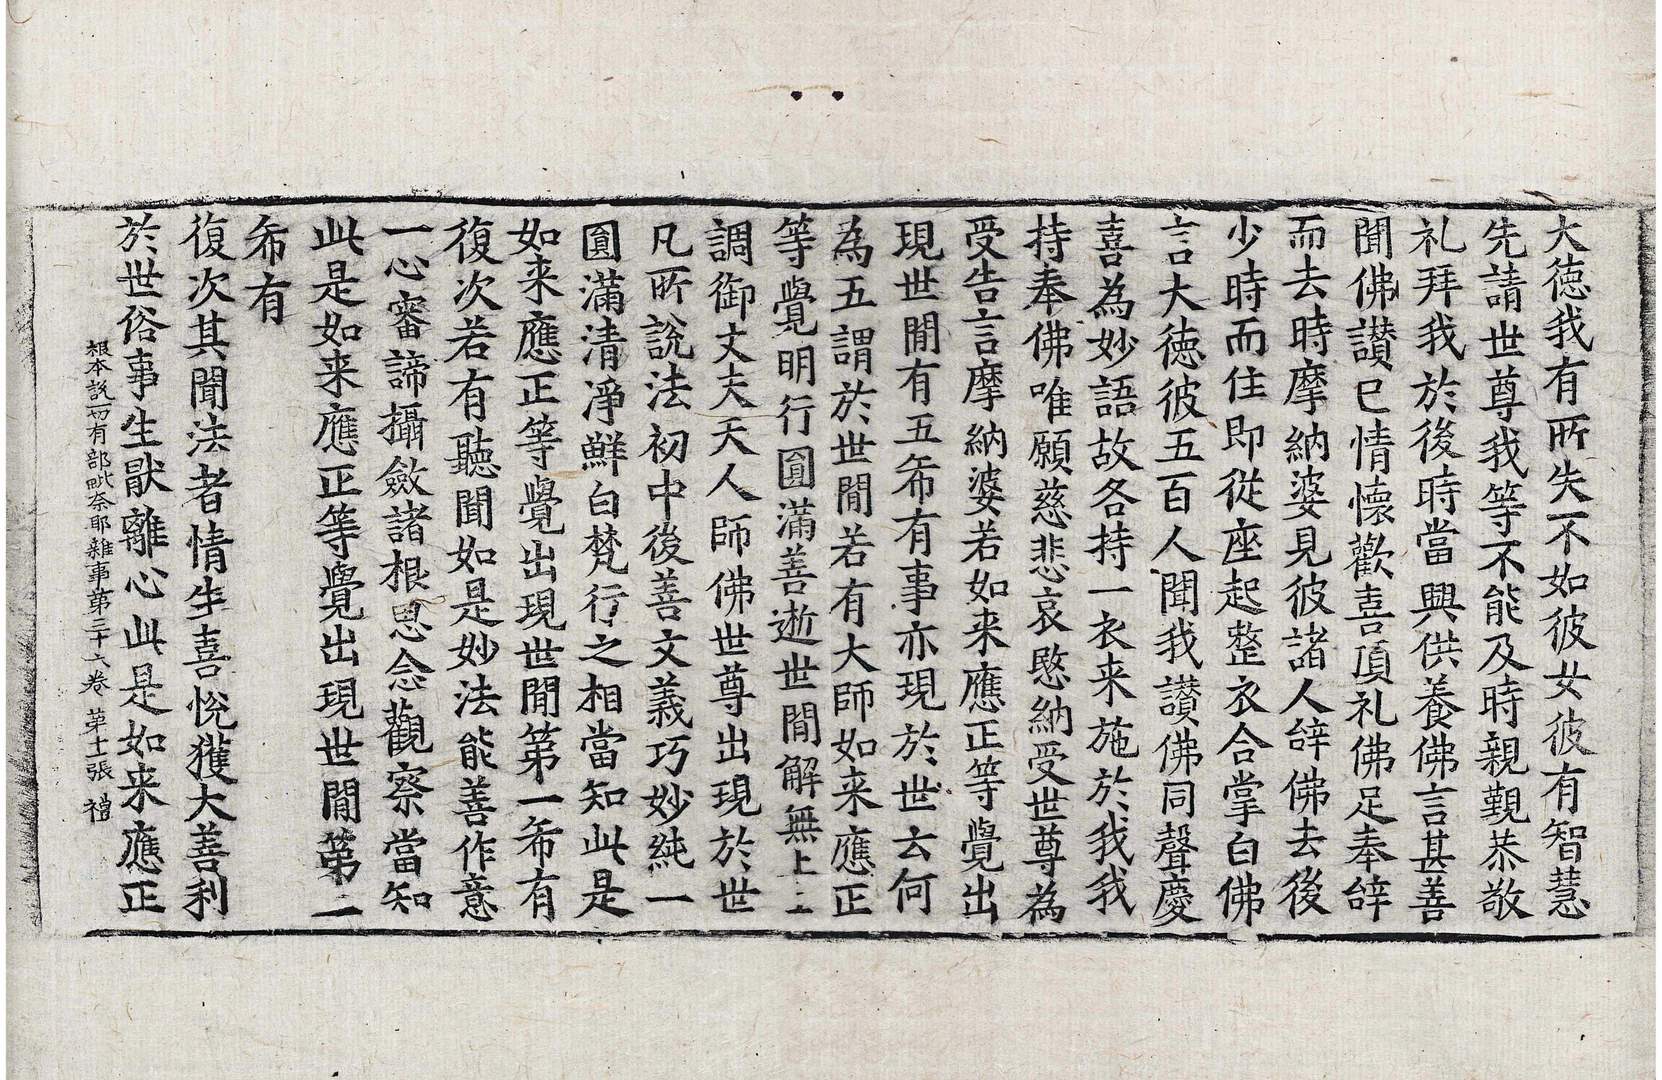 大德我有所失不如彼女彼有智慧
先請世尊我等不能及時親覲恭敬
礼拜我於後時當興供養佛言甚善
聞佛讃已情懷歡喜頂礼佛足奉辝
而去時摩納婆見彼諸人辝佛去後
少時而住即從座起整衣合掌白佛
言大徳彼五百人聞我讃佛同聲慶
喜為妙語故各持一衣来施於我我
持奉佛唯願慈悲哀愍納受世尊為
受告言摩納婆若如来應正等覺出
現世閒有五希有事亦現於世云何
為五謂於世閒若有大師如来應正
等覺明行圓滿善逝世閒解無上士
調御丈夫天人師佛世尊出現於世
凡所說法初中後善文義巧妙純一
圓滿清淨鮮白梵行之相當知此是
如来應正等覺出現世閒第一希有
復次若有聽聞如是妙法能善作意
一心審諦攝斂諸根思念觀察當知
此是如来應正等覺出現世閒第一
希有
復次其聞法者情生喜悅獲大善利
於世俗事生猒離心此是如来應正
根本說一切有部毗奈耶雜事第三十六卷 第十一張 禧